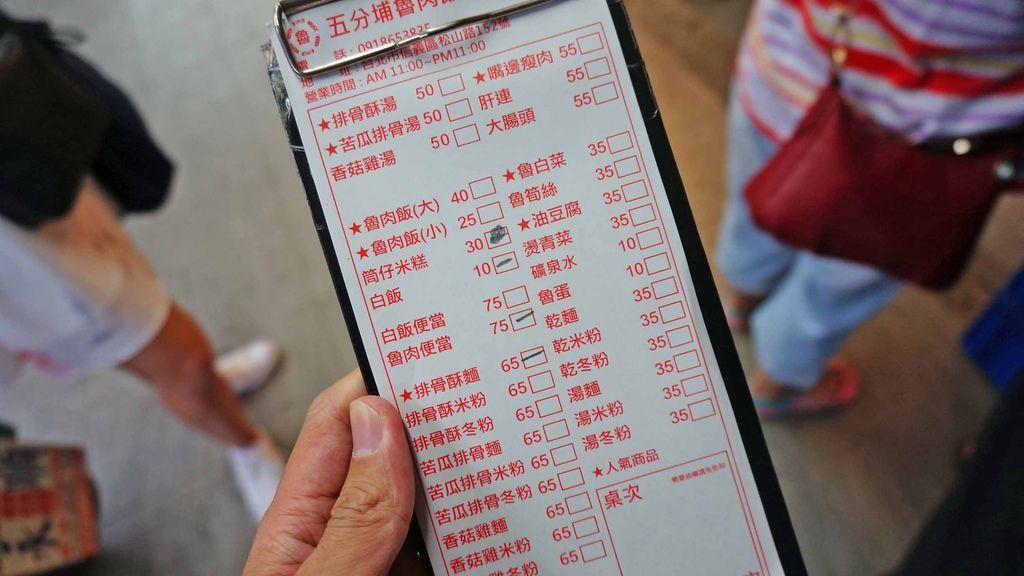 魯 五分埔魯肉
話:0918652835
址:台北市信義區松山路152號
營業時間:AM 11:00~PM11:00
★排骨酥湯 50
★苦瓜排骨湯 50
香菇雞湯 50
★魯肉飯(大) 40
★魯肉飯(小) 25
筒仔米糕 30
白飯 10
白飯便當 75
魯肉便當 75
★排骨酥麵 65
排骨酥米粉 65
排骨酥冬粉 65
苦瓜排骨麵 65
苦瓜排骨米粉 65
苦瓜排骨冬粉 65
香菇雞麵 65
香菇雞米粉 65
65
★嘴邊瘦肉 55
肝連 55
大腸頭 55
★魯白菜 35
魯筍絲 35
★油豆腐 35
燙青菜 35
礦泉水 10
魯蛋 10
乾麵 35
乾米粉 35
乾冬粉 35
湯麵 35
湯米粉 35
湯冬粉 35
★人氣商品
桌次